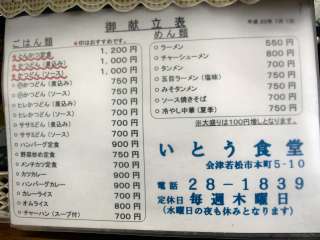 御献立表
平成 22年 7月 1日
ごはん類 ※印はおすすめです。
1,200 円
1,000 円
1,000 円
かつどん (煮込み) 750 円
かつどん (ソース) 750 円
ヒレかつどん (煮込み) 750 円
ヒレかつどん (ソース) 750 円
ササミどん (煮込み) 700 円
ササミどん (ソース) 700 円
ハンバーグ定食 900 円
野菜炒め定食 750 円
メンチカツ定食 900 円
カツカレー 900 円
ハンバーグカレー 900 円
カレーライス 700 円
オムライス 800 円
チャーハン (スープ付) 700 円
めん類
ラーメン 550 円
チャーシューメン 800 円
タンメン 700 円
五目ラーメン (塩味) 750 円
みそタンメン 750 円
ソース焼きそば 700 円
冷やし中華 (夏季) 750 円
※大盛りは100円増しとなります。
いとう食堂
会津若松市本町5-10
電話 28-1839
定休日 毎週木曜日
(水曜日の夜も休みとなります)